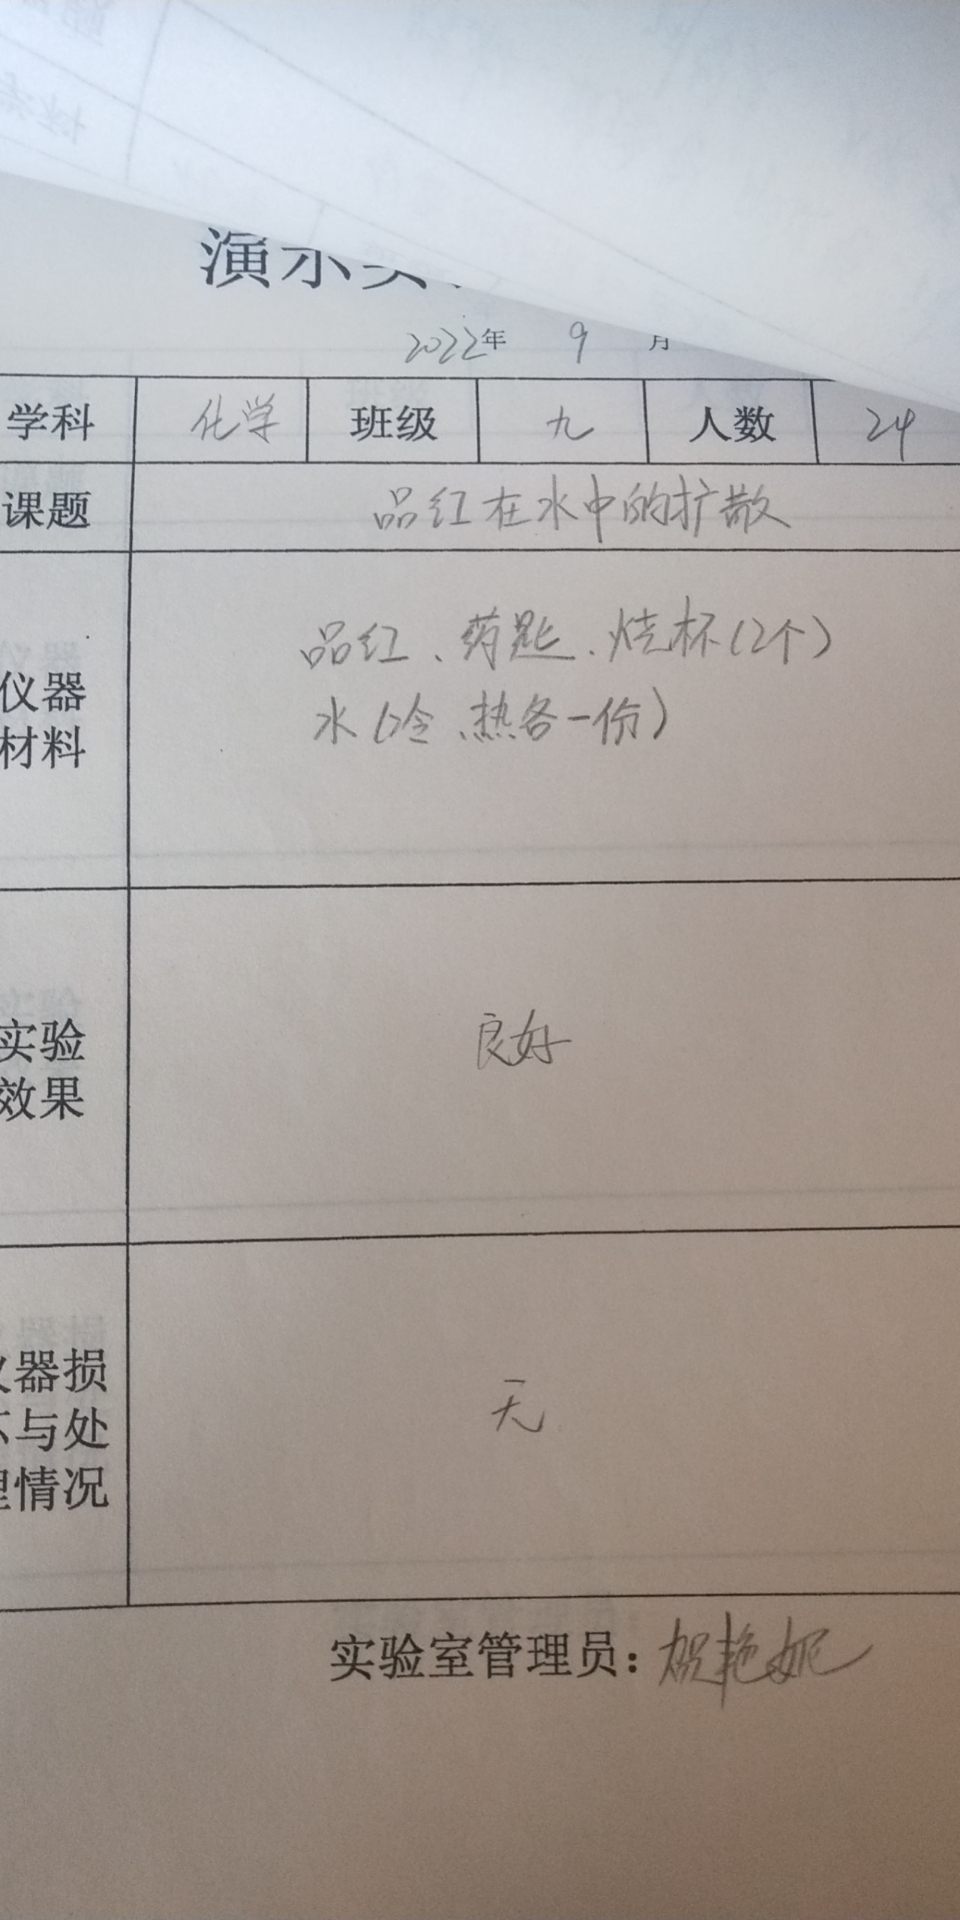 演示实
2022年 9 月
学科 化学 班级 九 人数 24
课题 品红在水中的扩散
品红、药匙、烧杯(2个)
仪器
材料
水(冷、热各一份)
实验
效果
良好
仪器损
坏与处
理情况
无
实验室管理员:贺艳妮